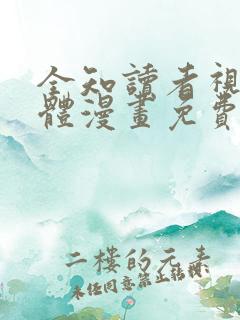 全知讀者視
體漫畫免費
二樓的元素
未经同意禁止转授